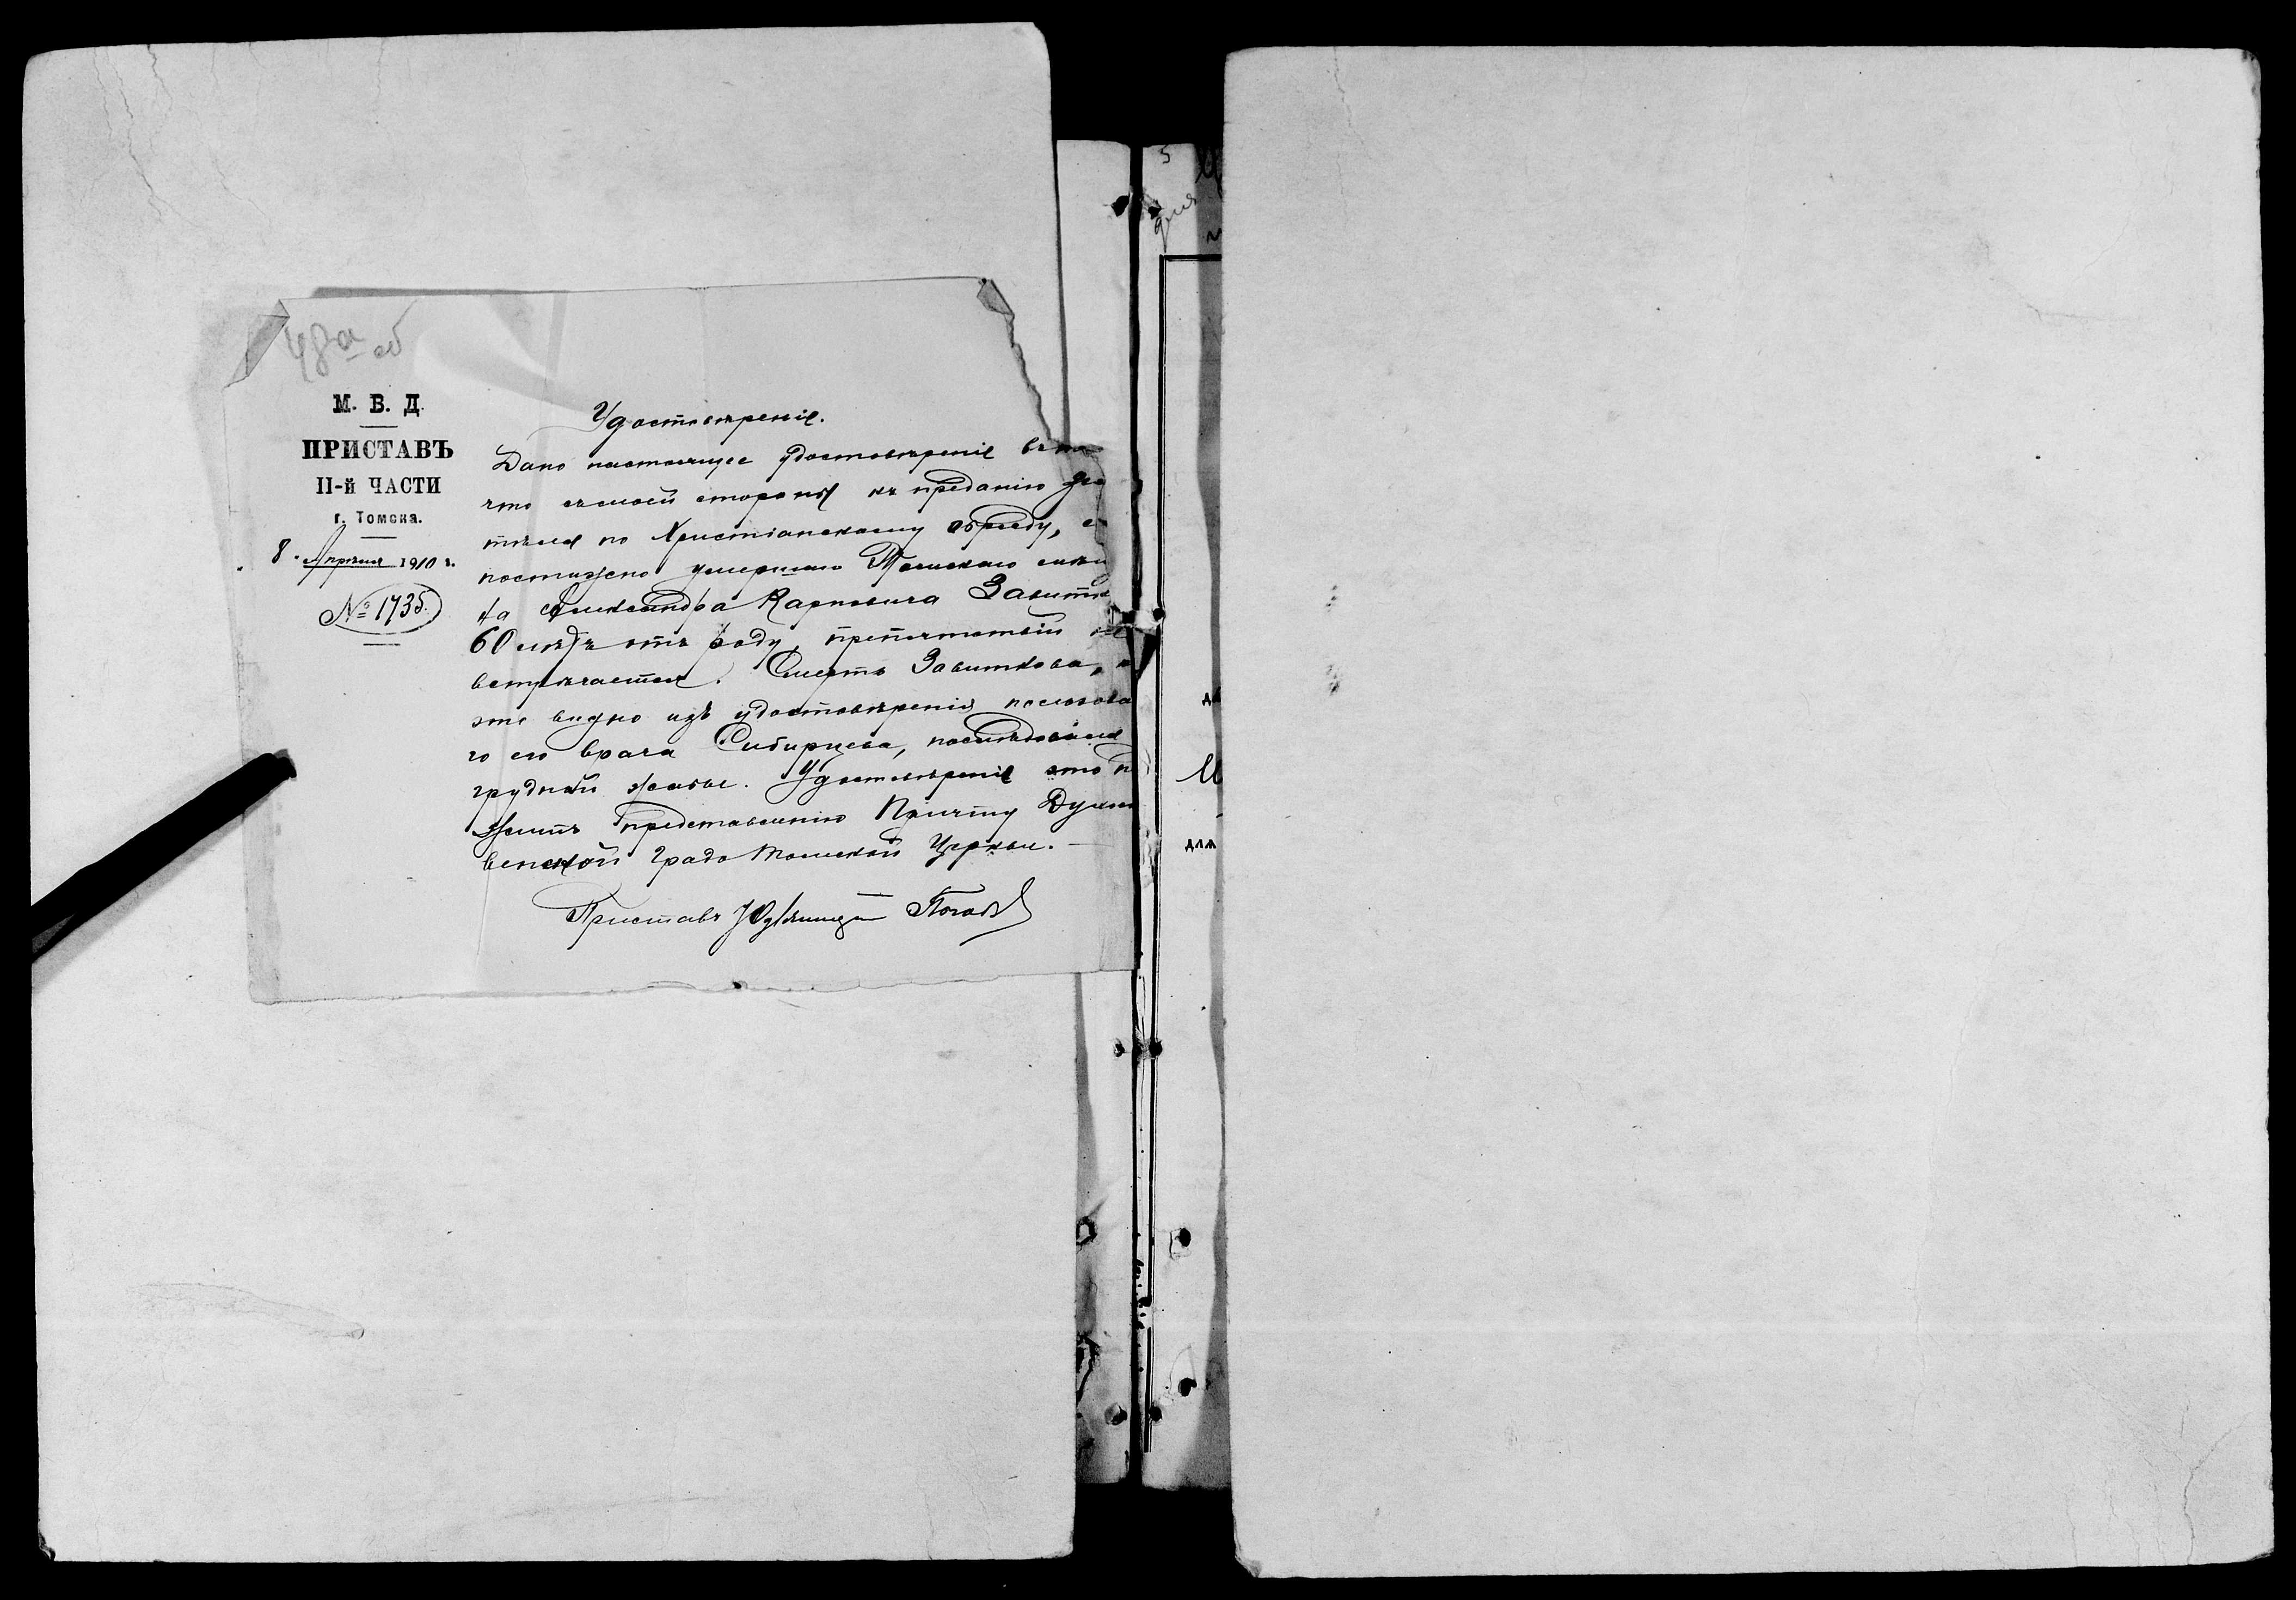 48а об
М. В. Д.
ПРИСТАВЪ
II-й ЧАСТИ
г. Томска.
8. Апрѣля 1910 г.
№ 1735.
Удостовѣреніе.
Дано настоящее удостовѣреніе въ то
что съ моей стороны къ преданію зе
тѣла по Христіанскому обряду, с
постижно умершаго Томскаго мѣщ
на Александра Карповича Завитк
60 лѣтъ отъ роду, препятствій не
встрѣчается. Смерть Завиткова, к
это видно изъ удостовѣренія пользова
го его врача Сибирцева, послѣдовала
грудной жабы. Удостовѣреніе это п
житъ представленію Причту Духо
венской градо Томской Церкви. —
Приставъ